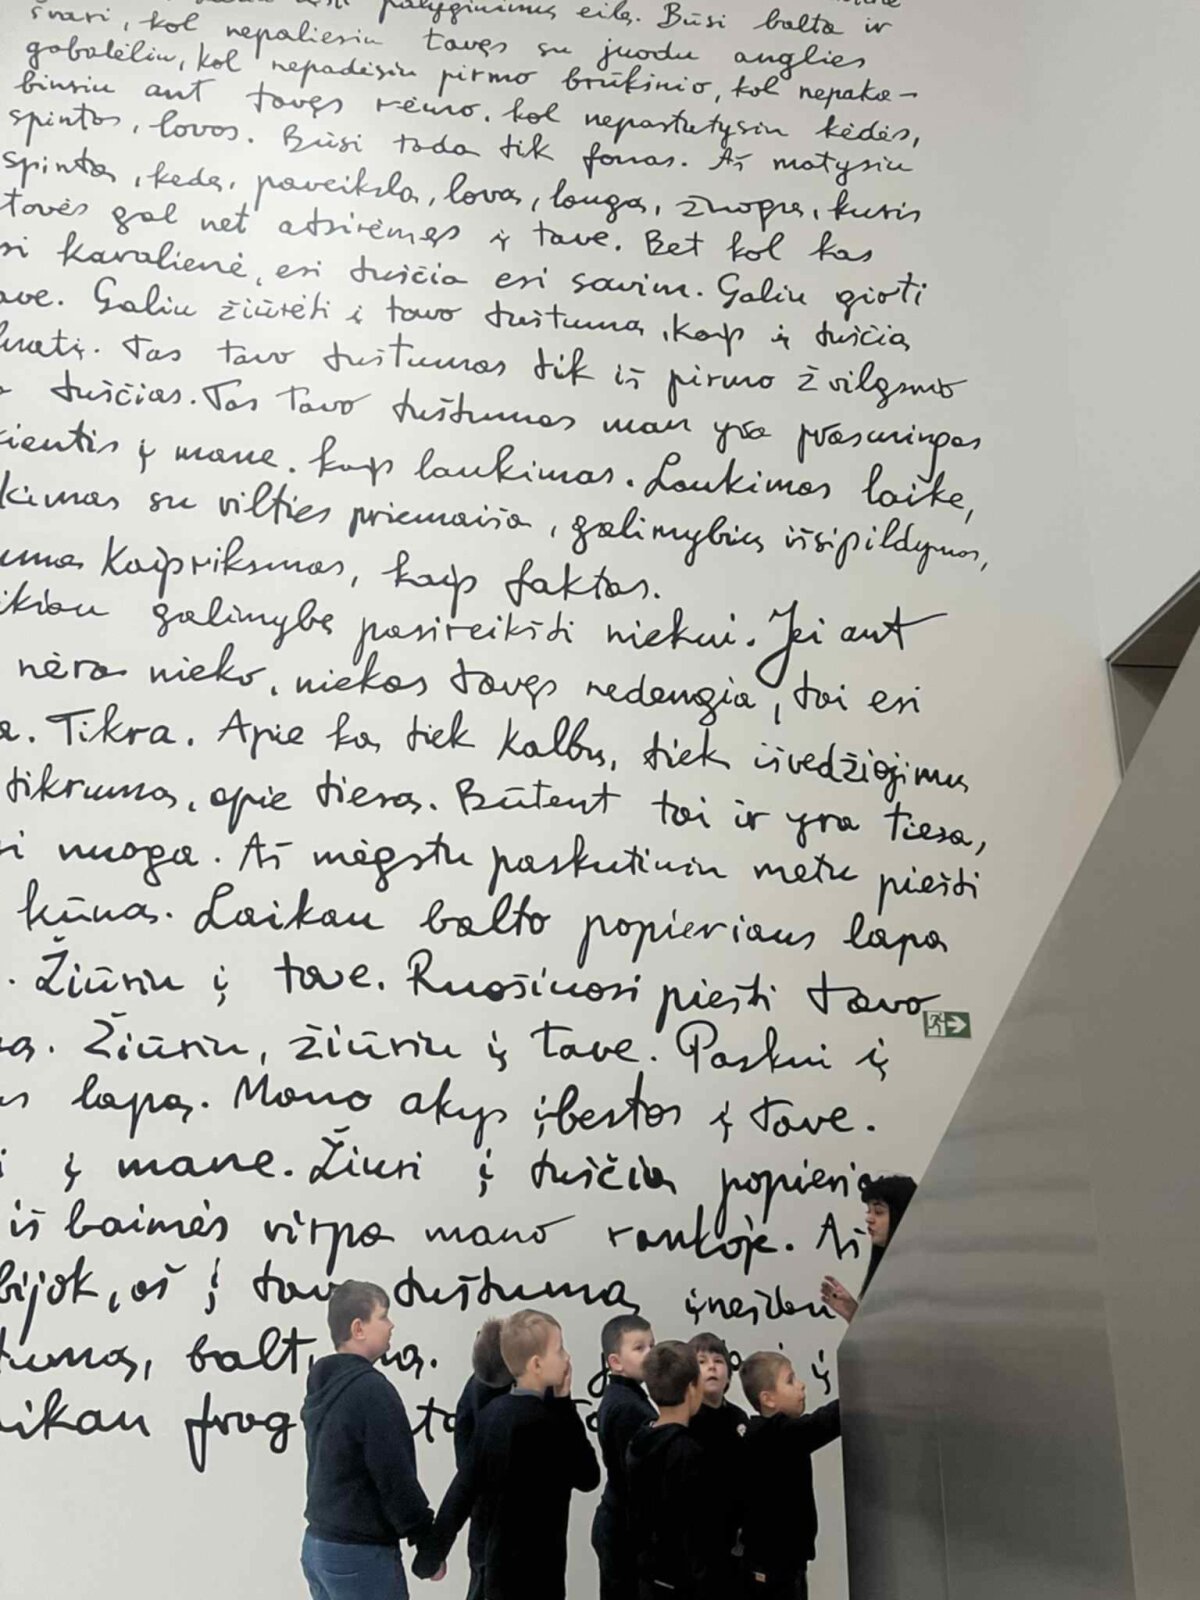 palyginimų eilę. Būsi balta ir
švari, kol nepaliesiu tavęs su juodu anglies
gabalėliu, kol nepadėsiu pirmo brūkšnio, kol nepaka-
binsiu ant tavęs rėmo. kol nepastatysiu kėdės,
spintos, lovos. Būsi tada tik fonas. Aš matysiu
spintą, kėdę, paveikslą, lovą, langą, žmogų, kuris
stovės gal net atsirėmęs į tave. Bet kol kas
karalienė, esi tuščia esi savim. Galiu girti
tave. Galiu žiūrėti į tavo tuštumą, kaip į tuščią
Tas tavo tuštumas tik iš pirmo žvilgsnio
tuščias. Tas Tavo tuštumas man yra prasmingas
į mane. kaip laukimas. Laukimas laike,
su vilties priemaiša, galimybių išsipildymas,
kaip faktas.
galimybę pasireikšti niekui. Jei ant
nėra nieko, niekas tavęs nedengia, tai esi
Tikra. Apie ką tiek kalbų, tiek išvedžiojimų
tikrumą, apie tiesą. Būtent tai ir yra tiesa,
nuoga. Aš mėgstu paskutiniu metu piešti
kūną. Laikau balto popieriaus lapą
Žiūriu į tave. Ruošiuosi piešti tavo
Žiūriu, žiūriu į tave. Paskui į
lapą. Mano akys įbestos į tave.
į mane. Žiūri į tuščią
iš baimės virpa mano rankoje. Aš
bijok, aš į tavo tuštumą įnešiau
į